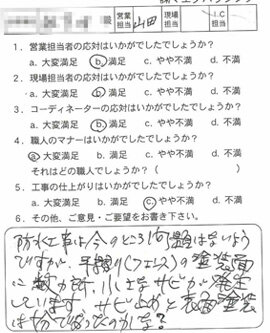 級 営業担当 山田 現場担当 I.C担当
1．営業担当者の応対はいかがでしたでしょうか？
a. 大変満足 b. 満足 c. やや不満 d. 不満
2．現場担当者の応対はいかがでしたでしょうか？
a. 大変満足 b. 満足 c. やや不満 d. 不満
3．コーディネーターの応対はいかがでしたでしょうか？
a. 大変満足 b. 満足 c. やや不満 d. 不満
4．職人のマナーはいかがでしたでしょうか？
a. 大変満足 b. 満足 c. やや不満 d. 不満
それはどの職人でしょうか？（
5．工事の仕上がりはいかがでしたでしょうか？
a. 大変満足 b. 満足 c. やや不満 d. 不満
6．その他、ご意見・ご要望をお書き下さい。
防水工事は今のところ問題はないよう
ですが、手摺り(フェンス)の塗装面
に数カ所、小さなサビが発生
しています。サビ止めと表面塗装
は十分であったのかな？